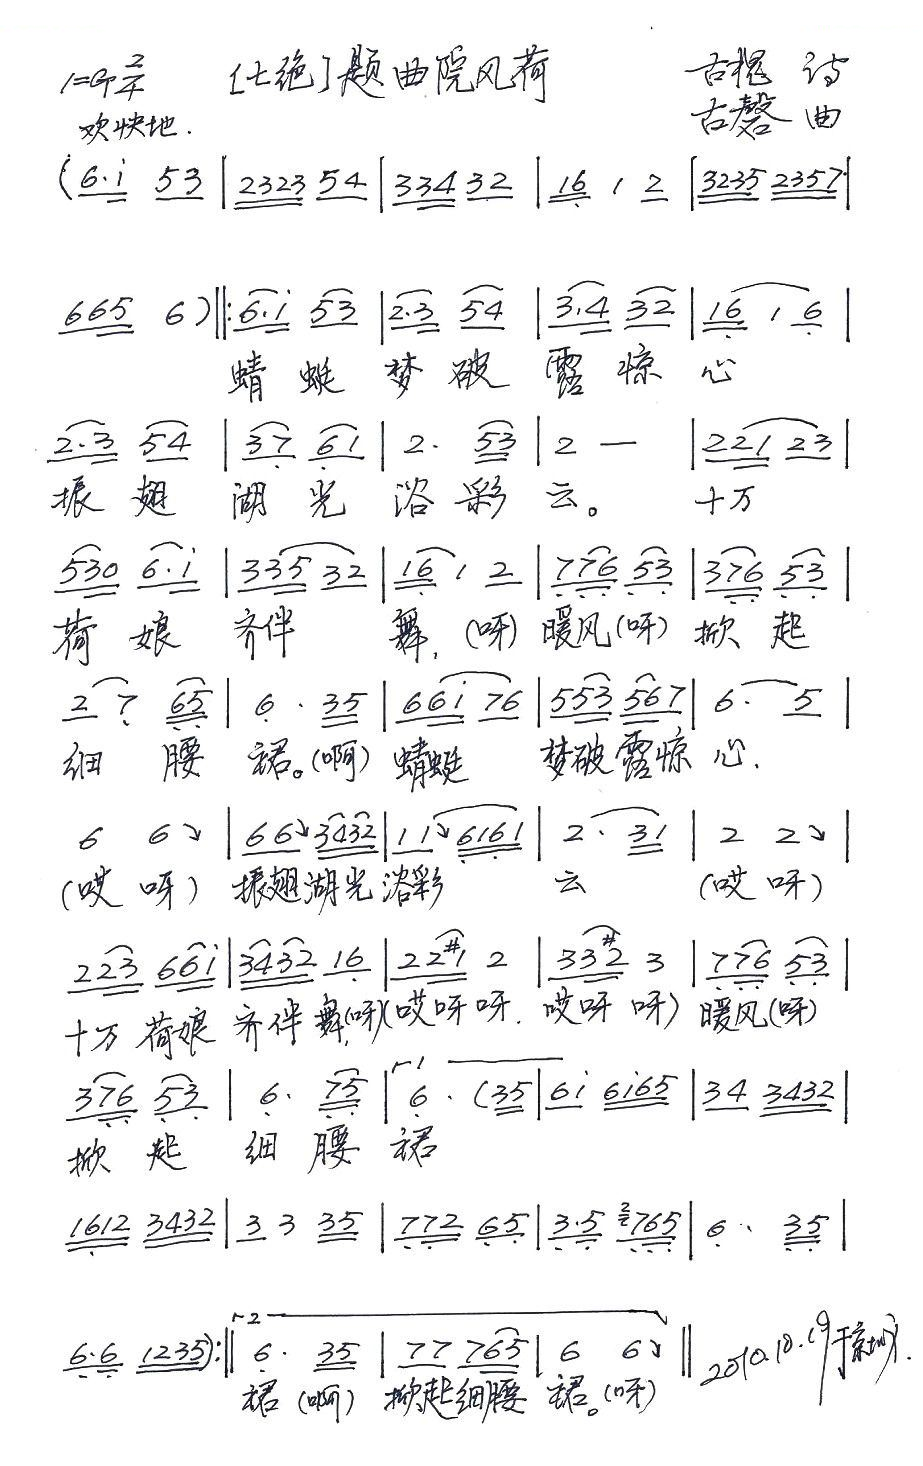 1=G 2/4 [七绝]题曲院风荷 古槐 诗
欢快地. 古磬 曲
(6·i 53 | 2323 54 | 334 32 | 16 1 2 | 3235 2357 |
665 6) ‖: 6·i 53 | 2·3 54 | 3·4 32 | 16 1 6 |
蜻蜓 梦破 露惊 心
2·3 54 | 37 61 | 2· 53 | 2 — | 221 23 |
振翅 湖光 浴彩 云。 十万
530 6·i | 335 32 | 16 1 2 | 776 53 | 376 53 |
荷娘 齐伴 舞,(呀) 暖风(呀) 掀起
2 7 65 | 6· 35 | 66i 76 | 553 567 | 6· 5 |
细腰 裙。(啊) 蜻蜓 梦破露惊 心.
6 6↘ | 66↘ 3432 | 11↘ 6161 | 2· 31 | 2 2↘ |
(哎呀) 振翅湖光 浴彩 云 (哎呀)
223 66i | 3432 16 | 22#1 2 | 33#2 3 | 776 53 |
十万荷娘 齐伴舞,(呀)(哎呀呀. 哎呀呀) 暖风(呀)
376 53 | 6· 75 | 1 6· (35 | 6i 6i65 | 34 3432 |
掀起 细腰 裙
1612 3432 | 3 3 35 | 772 65 | 3·5 2765 | 6· 35 |
6·6 1235) :‖ 2 6· 35 | 77 765 | 6 6↘ ‖ 2010.10.19于
裙(啊) 掀起细腰 裙。(呀)